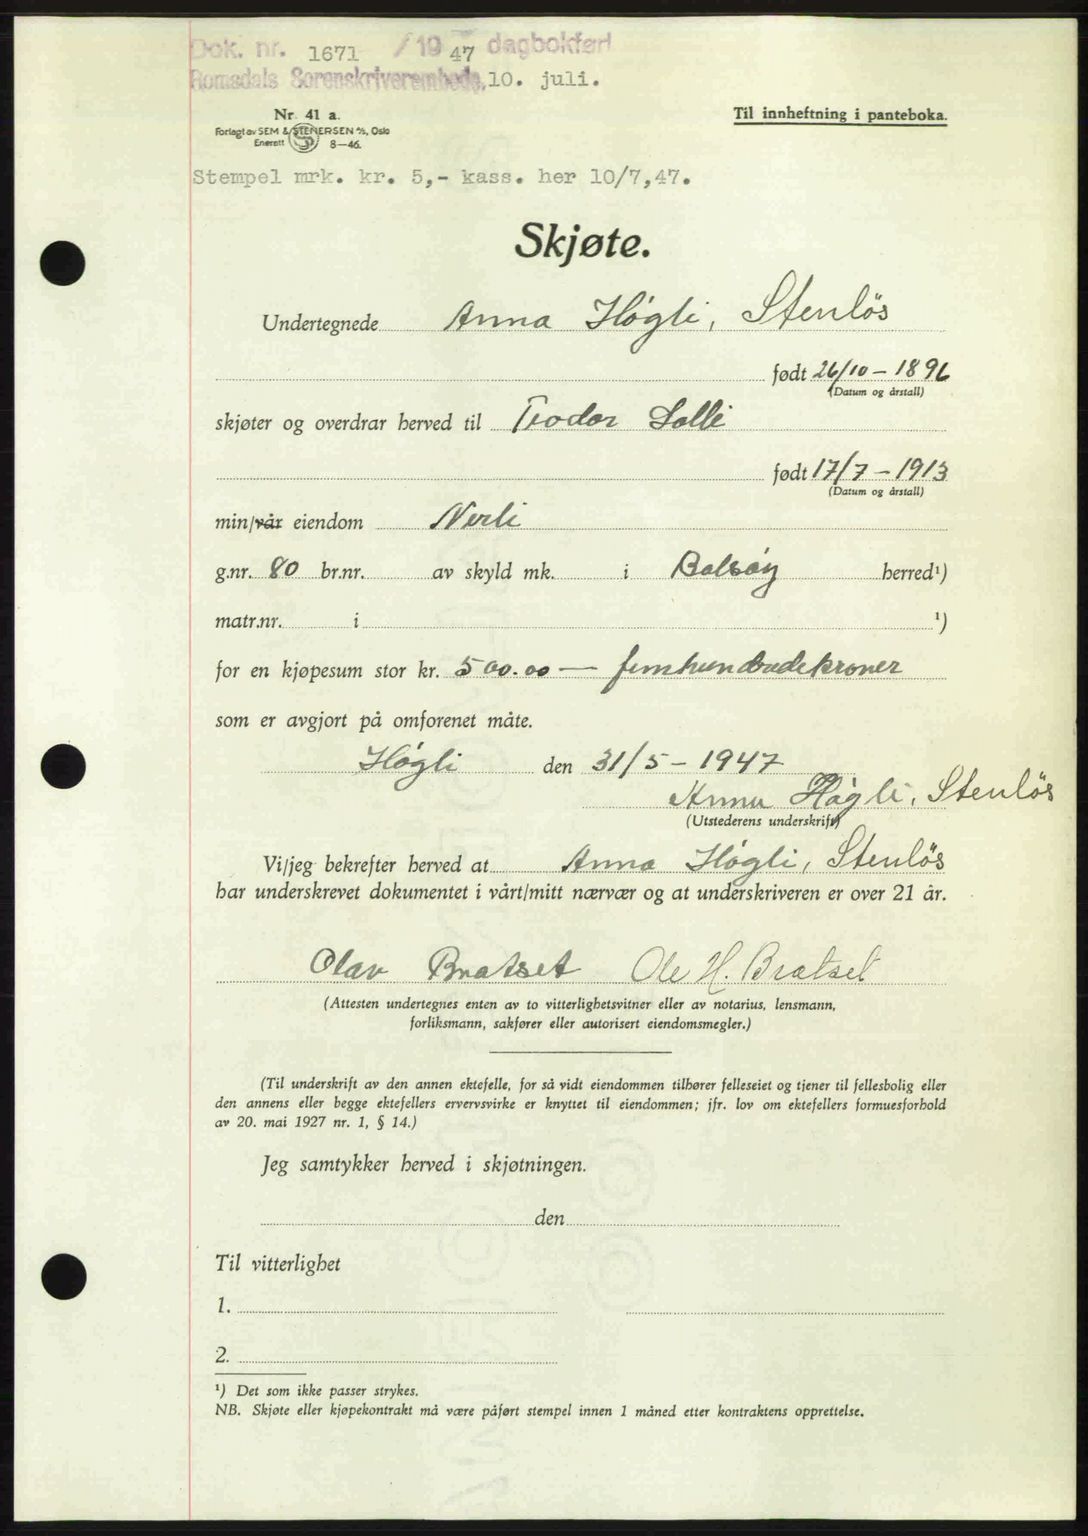 Dok. nr. 1671 / 19 47 dagbokført
Romsdals Sorenskriverembede, 10. juli.
Nr. 41 a.
Til innheftning i panteboka.
Forlagt av SEM & STENERSEN A/S, Oslo
Enerett 8—46.
Stempel mrk. kr. 5,- kass. her 10/7,47.
Skjøte.
Undertegnede Anna Høgli, Stenlös
født 26/10 - 1896
(Datum og årstall)
skjøter og overdrar herved til Teodor Solli
født 17/7 - 1913
(Datum og årstall)
min/vår eiendom Nerli
g.nr. 80 br.nr. av skyld mk. i Bolsøy herred¹)
matr.nr. i ¹)
for en kjøpesum stor kr. 500.00 — femhundredekroner
som er avgjort på omforenet måte.
Høgli den 31/5 - 1947
Anna Høgli, Stenlös
(Utstederens underskrift)
Vi/jeg bekrefter herved at Anna Høgli, Stenlös
har underskrevet dokumentet i vårt/mitt nærvær og at underskriveren er over 21 år.
Olav Bratset Ole H. Bratset
(Attesten undertegnes enten av to vitterlighetsvitner eller av notarius, lensmann,
forliksmann, sakfører eller autorisert eiendomsmegler.)
(Til underskrift av den annen ektefelle, for så vidt eiendommen tilhører felleseiet og tjener til fellesbolig eller
den annens eller begge ektefellers ervervsvirke er knyttet til eiendommen; jfr. lov om ektefellers formuesforhold
av 20. mai 1927 nr. 1, § 14.)
Jeg samtykker herved i skjøtningen.
den
Til vitterlighet
1.
2.
¹) Det som ikke passer strykes.
NB. Skjøte eller kjøpekontrakt må være påført stempel innen 1 måned etter kontraktens opprettelse.